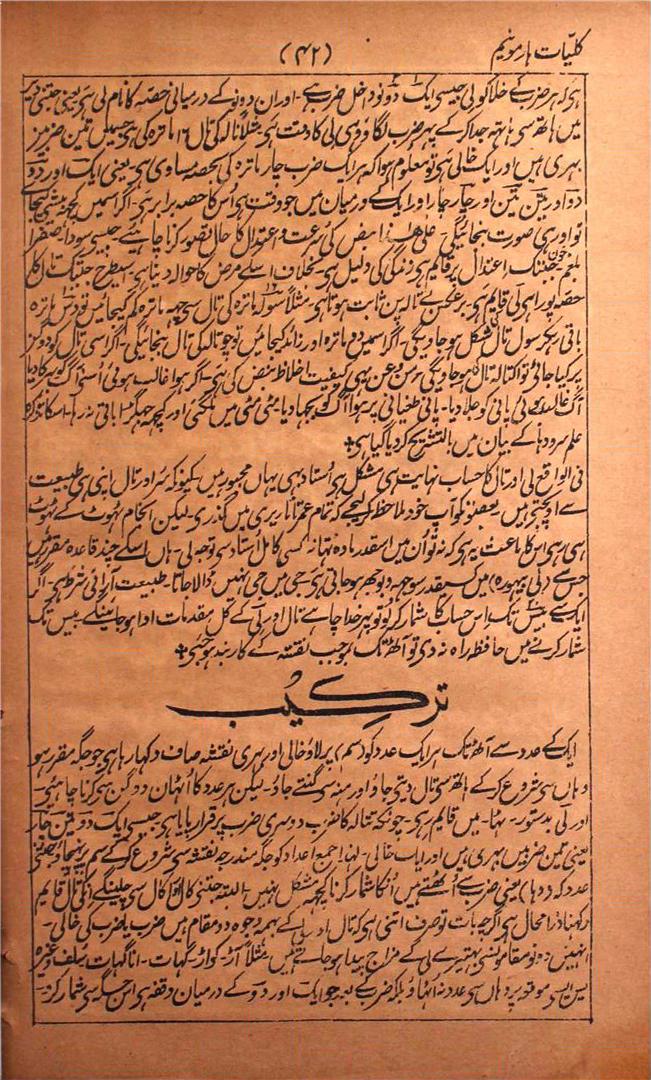 کلیّات ہارمونیم
(۴۲)
ہی کہ ہر ضرب کے خلا کو لی جیسی ایک دو نو داخل ضرب ہے۔ اور ان دونو کے درمیانی حصہ کا نام لی ہی یعنی جتنی دیر
میں ہاتھ سی ہاتہ جدا کر کے پہر ضرب لگاؤ وہی لی کا وقت ہی مثلاً تالہ کی تال ۱۶ ماترہ کی ہی جسمیں تین ضربیں
بہری ہیں اور ایک خالی ہی تو معلوم ہوا کہ ہر ایک ضرب چار ماترہ کی بحصہ مساوی ہی یعنی ایک اور دو
دو اور تین تین اور چار چار اور ایک کے درمیان میں جو وقت ہی اُس کا حصہ برابر ہی۔ اگر اسمیں کچہہ بیشی کیجائے
تو اور ہی صورت بنجائیگی۔ علیٰ ہذا نبض کی سُرعت و اعتدال کا حال تصور کرنا چاہئے۔ جیسے سودا۔ صفرا
بلغم خون جبتک اعتدال پر قایم ہی زندگی کی دلیل ہی بخلاف اسکے مرض کا حوالہ دیتا ہی۔ اسیطرح جبتک تال کا کل
حصہ پورا ہی لی قایم ہی۔ برعکس بے تالا پن ثابت ہوتا ہی۔ مثلاً سولہ ماترہ کی تال سی چہہ ماترہ کم کیجائیں تو دس ماترہ
باقی رہکر سول تال کی شکل ہو جاویگی۔ اگر اسمیں دو ماترہ اور زائد کیجائیں تو چوتالہ کی تال بنجائیگی۔ اگر اسی تال کو دوگن
پر کیا جائی تو اکتالہ تال ہو جاویگی من و عن یہی کیفیت اخلاط نبض کی ہی۔ اگر ہوا غالب ہوئی اُسنی آگ کو بہڑکا دیا
آگ غالب ہوئی پانی کو جلا دیا۔ پانی طغیانی پر ہوا آگ کو بجہا دیا۔ مٹی مٹی میں ملگئی اور کچہہ جہگڑا باقی نہ رہا۔ اسکا تذکرہ
علم سرودہا کے بیان میں بالتشریح کر دیا گیا ہی +
فی الواقع لی اور تال کا حساب نہایت ہی مشکل ہی اُستاد بہی یہاں مجبور ہیں۔ کیونکہ سُر اور تال اپنی ہی طبیعت
سے اوپجتی ہیں۔ بعضونکو آپ خود ملاحظہ کر لیجے کہ تمام عمر تاناریری میں گذری لیکن انجام ٹہوٹ کے ٹہوٹ
ہی رہی اس کا باعث یہ ہی کہ نہ تو اُن میں اسقدر مادہ تہا نہ کسی کامل اُستاد سی توجہ لی۔ ہاں اسکے چند قاعدہ مقرر ہیں
جس سے (لی بیہورہ) میں کسیقدر سوجہہ و بوجہہ ہو جاتی ہی۔ جی میں جی نہیں ڈالا جاتا۔ طبیعت آرائی شرط ہی۔ اگر
ایک سے بیس تک اس حساب کا شمار کر لو تو پہر خدا چاہے تال اور لی کے کل مقدمات ادا ہو جائینگے۔ بیس تک
شمار کرنے میں حافظہ راہ نہ دی تو آٹھ تک بموجب نقشہ کے کاربند ہو جئے +
ترکیب
ایک کے عدد سے آٹھ تک ہر ایک عدد کو (سم) پر لاؤ خالی اور بہری نقشہ صاف دکہا رہا ہی جو جگہ مقرر ہو
وہاں سی شروع کر کے ہاتھ سی تال دیتی جاؤ اور منہ سی گنتے جاؤ۔ لیکن ہر عدد کا اُٹہان دوگن ہی کرنا چاہئی۔
اور لَی بدستور۔ بہا۔ میں قایم رہی۔ چونکہ تتالہ کا ضرب دوسری ضرب پر قرار پایا ہی جیسی ایک دو تین چار
یعنی تین ضربیں بہری ہیں اور ایک خالی۔ لہذا جمیع اعداد کو جگہ مندرجہ نقشہ سی شروع کر کے سم پر پہنچاؤ جتنی
عدد کہ (دہا) یعنی ضرب سے اُٹھتے ہیں اُنکا شمار کرنا کچہہ مشکل نہیں۔ البتہ جتنی کال سی چلینگے (لَی) تال قایم
رکہنا ذرا محال ہی اگرچہ بات تو صرف اتنی ہی کہ تال اور لی کے بہمہ وجوہ دو مقام ہیں ضرب یا ضرب کی خالی۔
انہیں دونو مقامونسی بہتیرے لَی کے مزاج پیدا ہو جاتے ہیں مثلاً آڑ۔ کواڑ۔ گہات۔ اناگہات۔ سلف وغیرہ
پس ایسی موقعہ پر وہاں سی عدد نہ اُٹہاؤ بلکہ ضرب کے بعد جو ایک اور دو کے درمیان وقفہ ہی اس جگہ سی شمار کرو۔